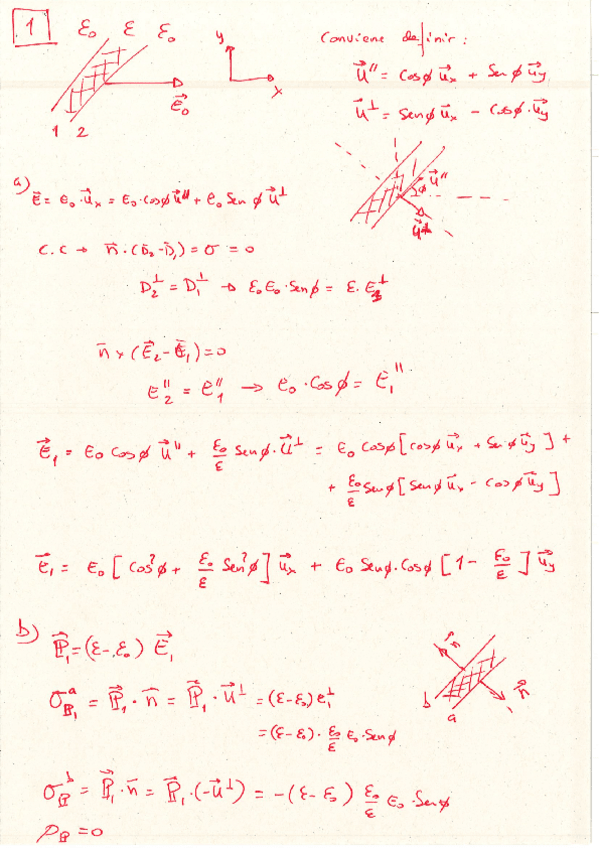 1
ε₀ ε ε₀
y
x
E⃗₀
1 2
Conviene definir:
u⃗" = Cosϕ u⃗x + Senϕ u⃗y
u⃗⊥ = Senϕ u⃗x - Cosϕ·u⃗y
ϕ u⃗"
u⃗⊥
a)
E⃗ = E₀·u⃗x = E₀·Cosϕ u⃗" + E₀ Senϕ u⃗⊥
C.C → n̄·(D̄₂-D̄₁) = σ = 0
D₂⊥ = D₁⊥ → ε₀E₀·Senϕ = ε·E₁⊥
n̄ x (E⃗₂ - E⃗₁) = 0
E₂" = E₁" → E₀·Cosϕ = E₁"
E⃗₁ = E₀ Cosϕ u⃗" + ε₀/ε Senϕ·u⃗⊥ = E₀ Cosϕ [Cosϕ u⃗x + Senϕ u⃗y] +
+ ε₀/ε Senϕ [Senϕ u⃗x - Cosϕ u⃗y]
E⃗₁ = E₀ [Cos²ϕ + ε₀/ε Sen²ϕ] u⃗x + E₀ Senϕ·Cosϕ [1 - ε₀/ε] u⃗y
b)
P⃗₁ = (ε - ε₀) E⃗₁
n⃗
n⃗
b
a
σᵃP₁ = P⃗₁·n̄ = P⃗₁·u⃗⊥ = (ε-ε₀) E₁⊥
= (ε-ε₀)·ε₀/ε E₀·Senϕ
σᵇP = P⃗₁·n̄ = P⃗₁·(-u⃗⊥) = -(ε-ε₀) ε₀/ε E₀·Senϕ
ρP = 0